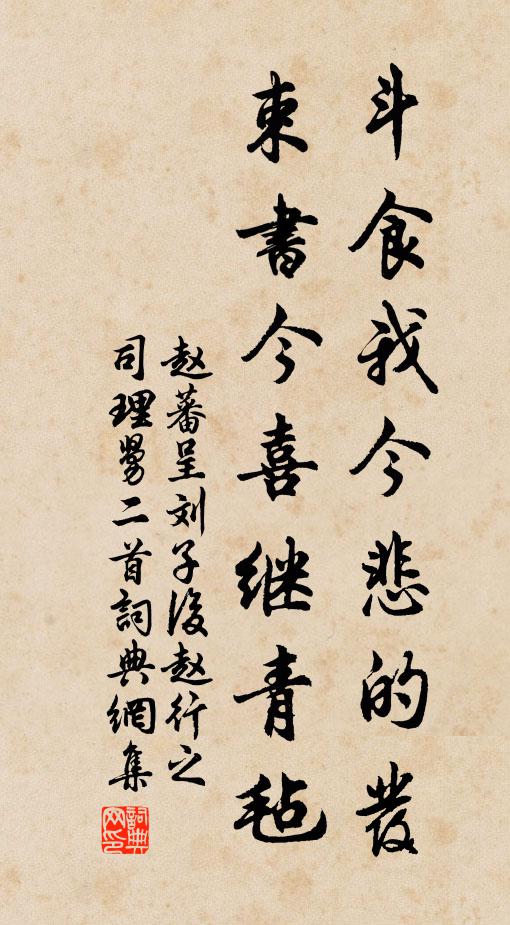 斗食我今悲的发
束书今喜继青毡
赵蕃呈刘子后赵行之
司理舅二首词典网集
词典网印